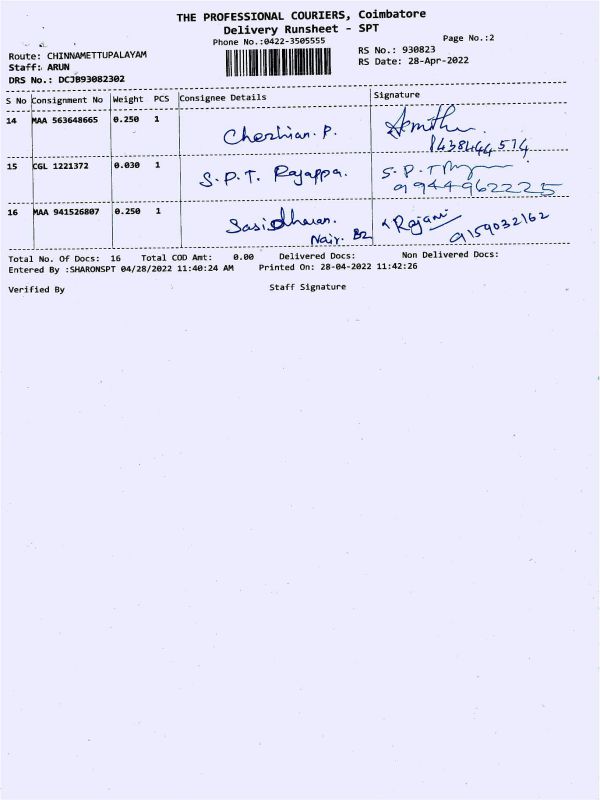 THE PROFESSIONAL COURIERS, Coimbatore
Delivery Runsheet - SPT
Phone No.:0422-3505555
Page No.:2
Route: CHINNAMETTUPALAYAM
RS No.: 930823
Staff: ARUN
RS Date: 28-Apr-2022
DRS No.: DCJB93082302
S No Consignment No Weight PCS Consignee Details Signature
14 MAA 563648665 0.250 1 Chezhian. P.
8438444514
15 CGL 1221372 0.030 1 S.P.T. Rajappa. S.P.T
9944962225
16 MAA 941526807 0.250 1 Sasidharan. Rajani
Nair. B2 9159032162
Total No. Of Docs: 16 Total COD Amt: 0.00 Delivered Docs: Non Delivered Docs:
Entered By :SHARONSPT 04/28/2022 11:40:24 AM Printed On: 28-04-2022 11:42:26
Verified By Staff Signature